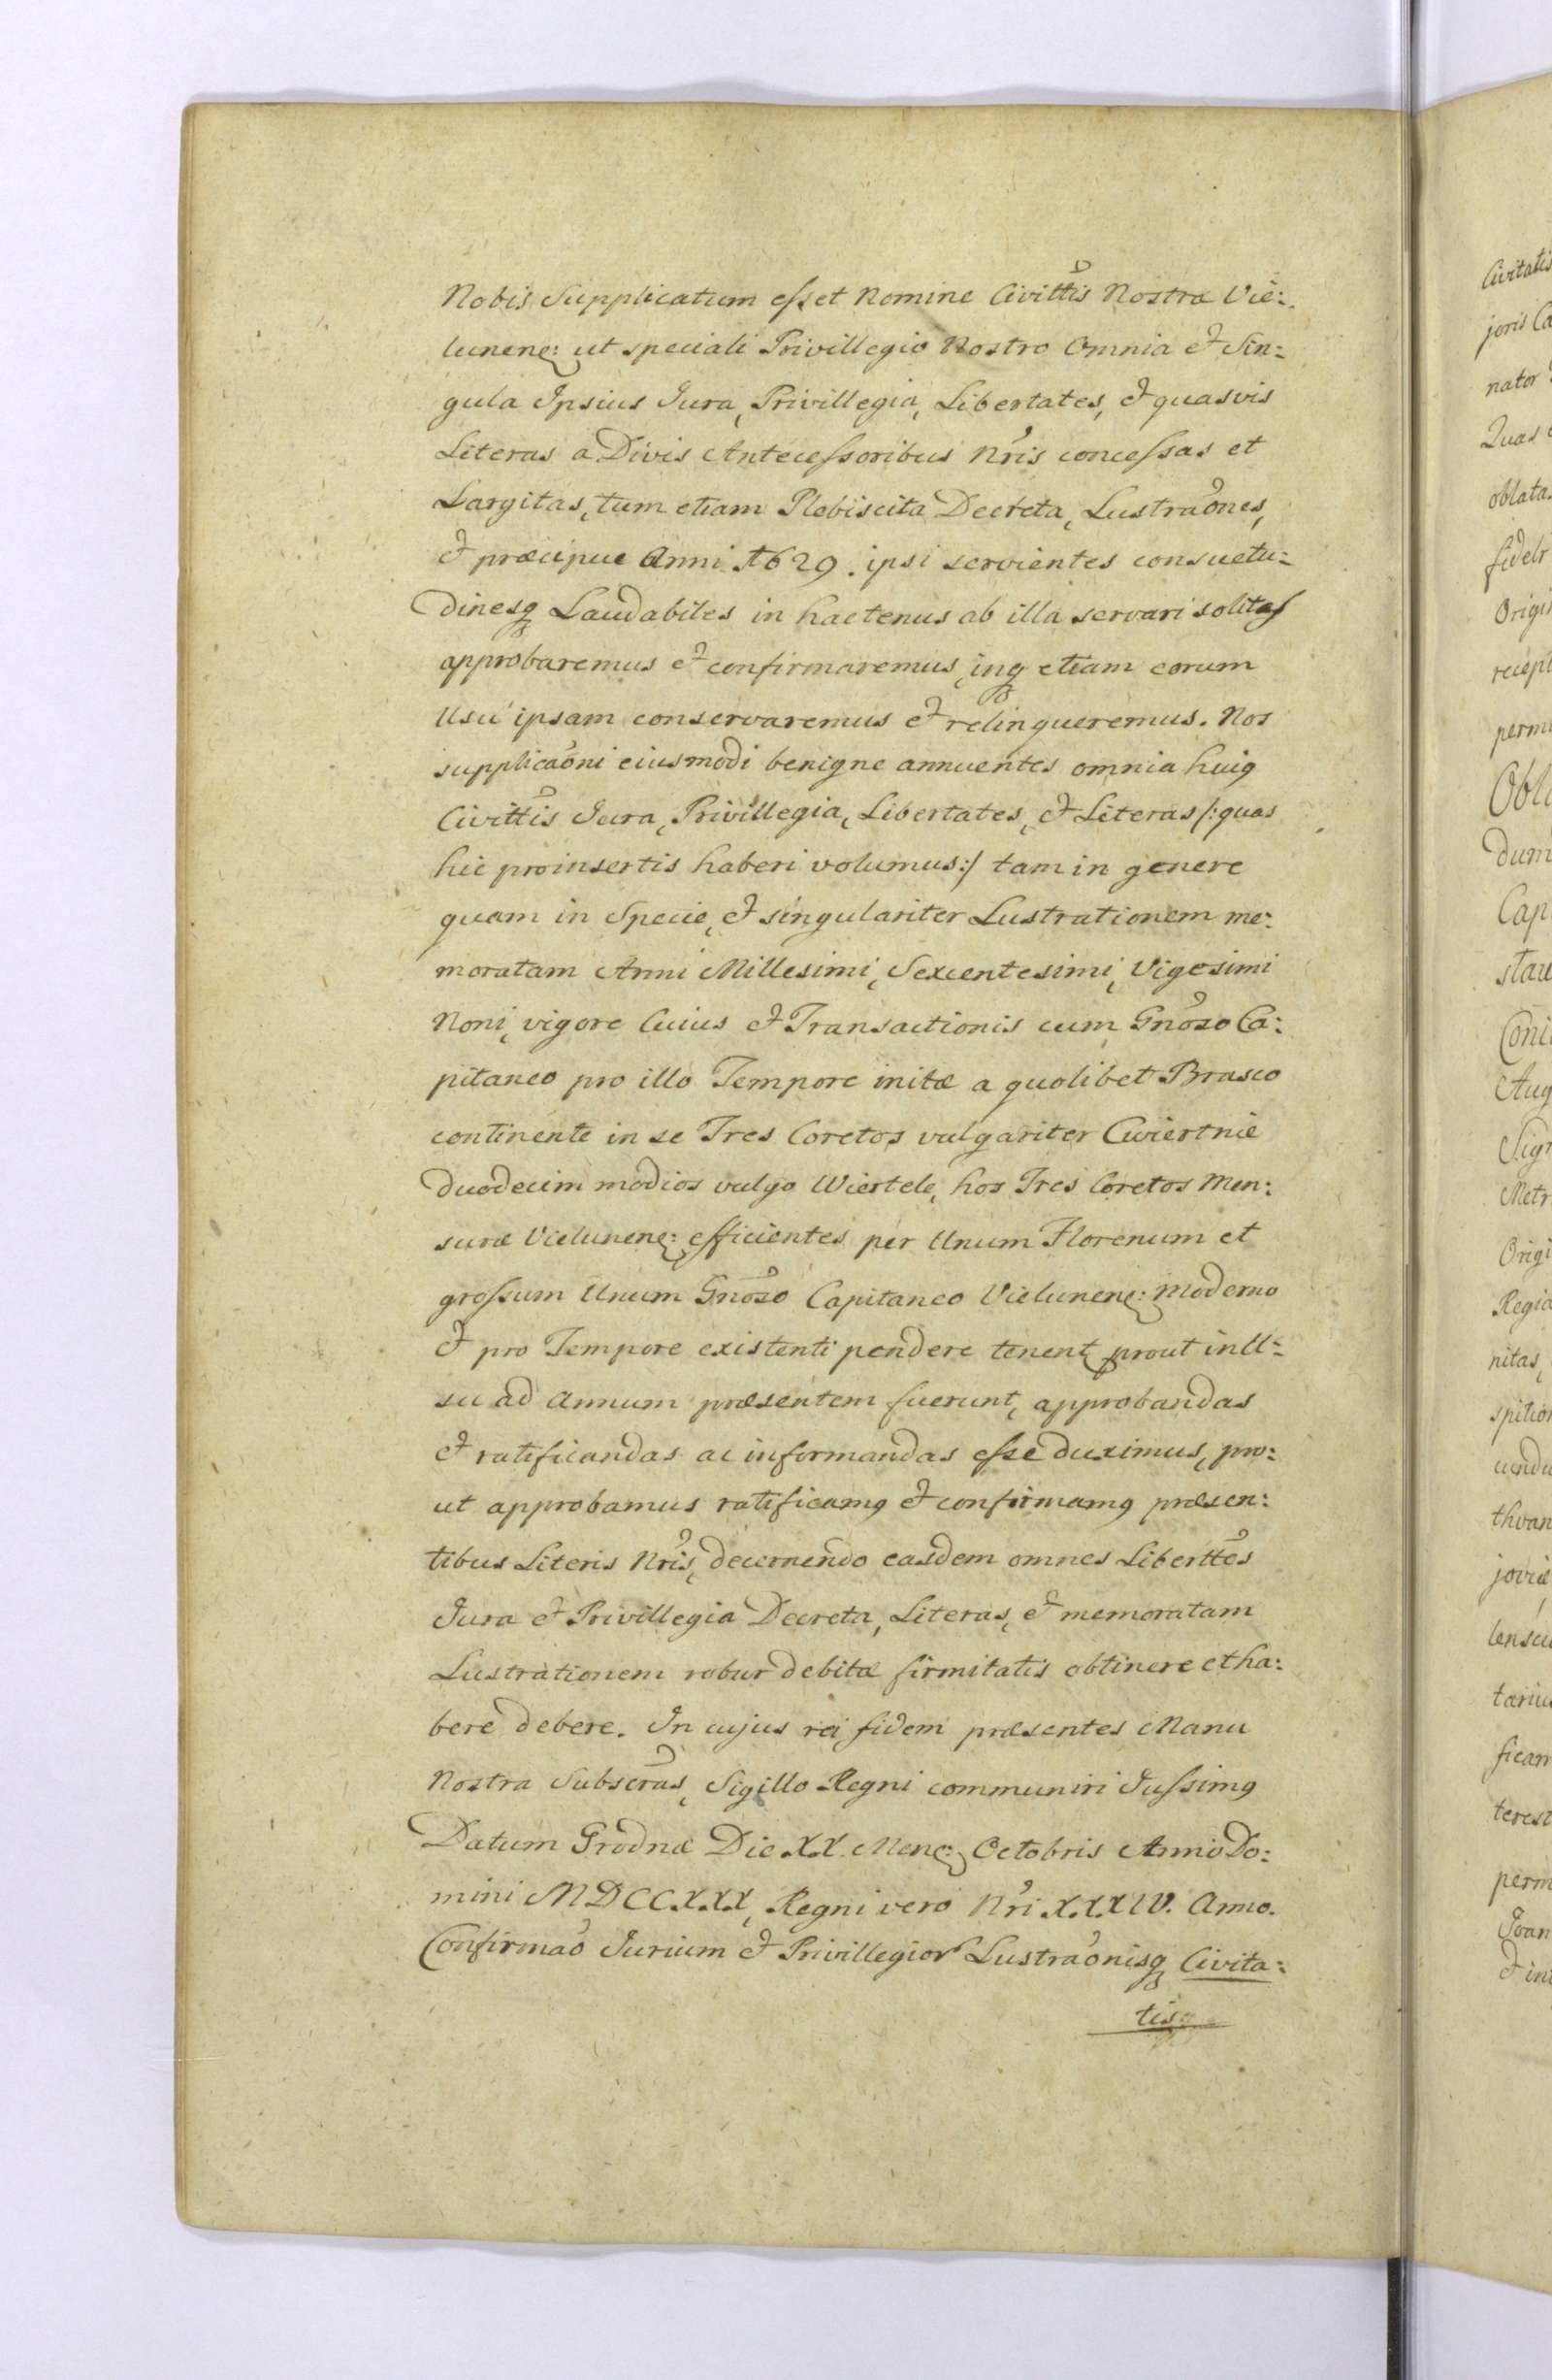 Nobis Supplicatum esset Nomine Civittis Nostræ Vie:
lunenę: ut speciali Privillegio Nostro Omnia et Sin:
gula Ipsius Jura, Privillegia, Libertates, et quasvis
Literas a Divis Antecessoribus Nris concessas et
Largitas, tum etiam Plebiscita Decreta, Lustraones,
et præcipue Anni 1629. ipsi servientes consuetu:
dinesq Laudabiles in hactenus ab illa servari solitas
approbaremus et confirmaremus, inq etiam eorum
Usu ipsam conservaremus et relinqueremus. Nos
supplicaoni eiusmodi benigne annuentes omnia huig
Civittis Jura, Privillegia, Libertates, et Literas /: quas
hic proinsertis haberi volumus :/ tam in genere
quam in Specie, et singulariter Lustrationem me:
moratam Anni Millesimi, Sexcentesimi, Vigesimi
Noni, vigore Cuius et Transactionis cum Gnoso Ca:
pitaneo pro illo Tempore initæ a quolibet Brasco
continente in se Tres Coretos vulgariter Cwiertnie
duodecim modios vulgo Wiertele, hos Tres Coretos Men:
suræ Vielunenę: efficientes per Unum Florenum et
grossum Unum Gnoso Capitaneo Vielunenę: Moderno
et pro Tempore existenti pendere tenent prout in U:
su ad Annum præsentem fuerunt, approbandas
et ratificandas ac informandas esse duximus, pro:
ut approbamus ratificamg et confirmamg præsen:
tibus Literis Nris, decernendo easdem omnes Liberttes
Jura et Privillegia Decreta, Literas, et memoratam
Lustrationem robur debitæ firmitatis obtinere et ha:
bere debere. In cujus rei fidem præsentes Manu
Nostra Subscras, Sigillo Regni communiri Jussimg
Datum Grodnæ Die XX. Menę: Octobris Anno Do:
mini MDCCXXX, Regni vero Nri XXXIV. Anno.
Confirmao Jurium et Privillegior Lustraonisq Civita:
tisq